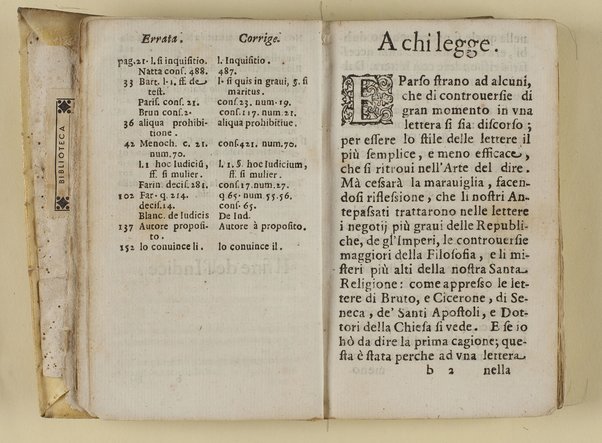 Errata. Corrige.
pag.21. l. si inquisitio. l. Inquisitio.
Natta cons. 488. 487.
33 Bart. l. 1. ff. de l. si quis in graui, §. si
test. maritus.
Paris. cons. 21. cons. 23. num. 19.
Brun cons. 2. cons. 117. num. 21.
36 aliqua prohibi- aliqua prohibitiue.
tione.
42 Menoch. c. 21. cons. 421. num. 70.
num. 70.
l. 1 hoc Iudicis, l. 1. §. hoc Iudicium,
ff. si mulier. ff. si mulier.
Farin. decis. 281. cons. 17. num. 27.
102 Far. q. 214. q 65. num 55.56.
decis. 14. cons. 65.
Blanc. de Iudicis De Ind.
137 Autore proposi- Autore à proposito.
to.
152 lo conuince li. lo conuince il.
BIBLIOTECA
A chi legge.
E' Parso strano ad alcuni,
che di controuersie di
gran momento in vna
lettera si sia discorso;
per essere lo stile delle lettere il
più semplice, e meno efficace,
che si ritroui nell'Arte del dire.
Mà cessarà la marauiglia, facen-
dosi riflessione, che li nostri An-
tepassati trattarono nelle lettere
i negotij più graui delle Republi-
che, de gl'Imperi, le controuersie
maggiori della Filosofia, e li mi-
steri più alti della nostra Santa
Religione: come appresso le let-
tere di Bruto, e Cicerone, di Se-
neca, de' Santi Apostoli, e Dot-
tori della Chiesa si vede. E se io
hò da dire la prima cagione; que-
sta è stata perche ad vna lettera
b 2 nella